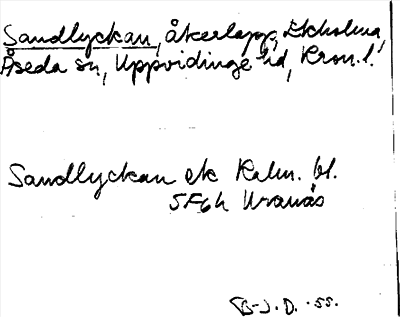 Sandlyckan, åkerlapp, Ekholma,
Åseda sn, Uppvidinge hd, Kron. l.
Sandlyckan ek Kalm. bl.
5F6h Uranäs
B-J. D. -55.